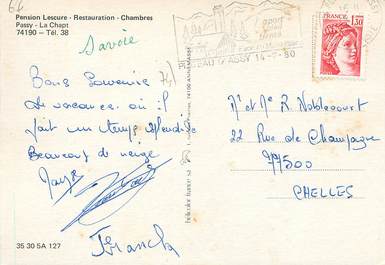 64
Pension Lescure - Restauration - Chambres
Passy - La Chapt
74190 - Tél. 38
Savoie
74
Bons Souvenirs
de vacances où il
fait un temps splendide
Beaucoup de neige
Franck
35 30 5A 127
sport
PLATEAU D'ASSY 14-2-80
FRANCE
1,30
Mr et Me R. Noblecourt
22 Rue de Champagne
77500
CHELLES